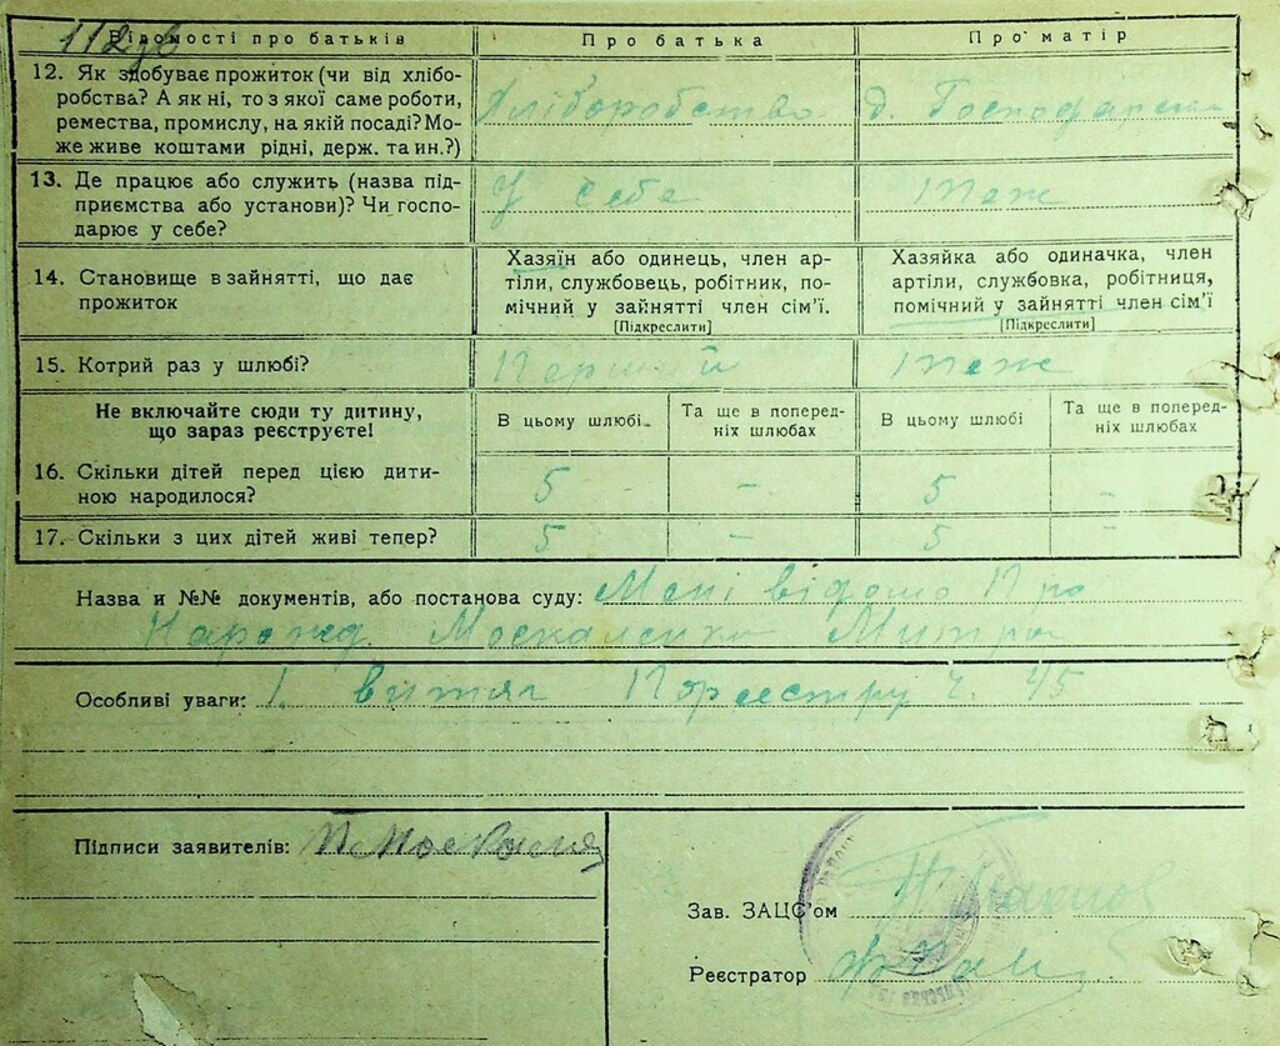 112зв
Відомості про батьків
Про батька
Про матір
12. Як здобуває прожиток (чи від хлібо-
робства? А як ні, то з якої саме роботи,
ремества, промислу, на якій посаді? Мо-
же живе коштами рідні, держ. та ин.?)
Хліборобство
д. Господарст
13. Де працює або служить (назва під-
приємства або установи)? Чи госпо-
дарює у себе?
У себе
теж
14. Становище в зайнятті, що дає
прожиток
Хазяїн або одинець, член ар-
тіли, службовець, робітник, по-
мічний у зайнятті член сім'ї.
[Підкреслити]
Хазяйка або одиначка, член
артіли, службовка, робітниця,
помічний у зайнятті член сім'ї
[Підкреслити]
15. Котрий раз у шлюбі?
Перший
теж
Не включайте сюди ту дитину,
що зараз реєструєте!
В цьому шлюбі
Та ще в поперед-
ніх шлюбах
В цьому шлюбі
Та ще в поперед-
ніх шлюбах
16. Скільки дітей перед цією дити-
ною народилося?
5 - 5 -
17. Скільки з цих дітей живі тепер?
5 - 5 -
Назва и №№ документів, або постанова суду: Мені відомо Про
Нарожд. Москаленка Митра
Особливі уваги: 1. витяг ч. 45
Підписи заявителів:
Зав. ЗАЦС'ом
Реєстратор